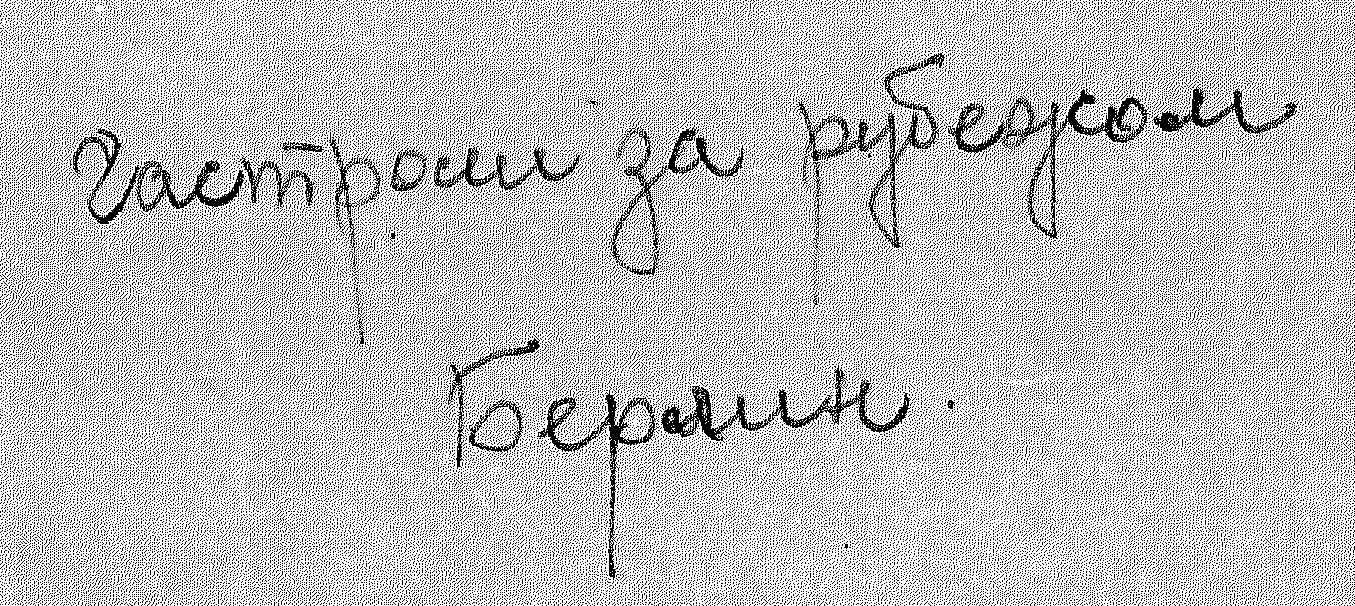 Гастроли за рубежом
Берлин.